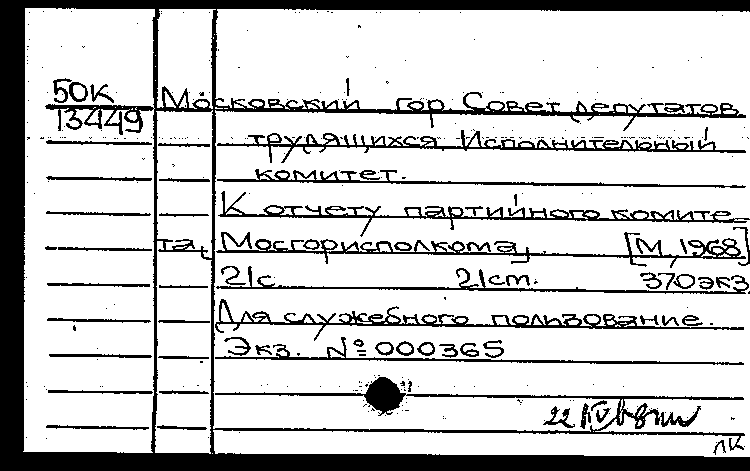 50К
13449
Московский гор Совет депутатов
трудящихся, Исполнительный
комитет.
К отчету партийного комите-
та Мосгорисполкома, [М, 1968]
21с. 21см. 370экз
Для служебного пользования.
Экз. № 000365
22 IV
ЛК